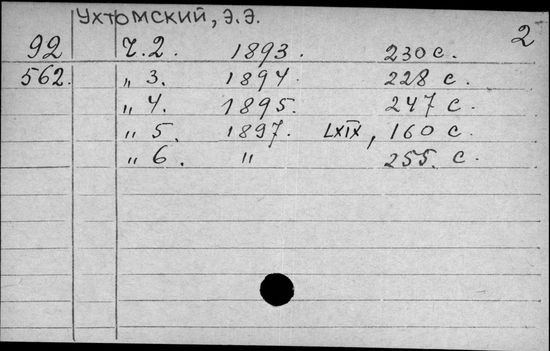 Ухтомский, Э.Э.
2
92 Ч.2. 1893. 230 с.
562. „ 3. 1894. 228 с.
„ 4. 1895. 247 с.
„ 5. 1897. LXIX, 160 с.
„ 6. „ 255. с.